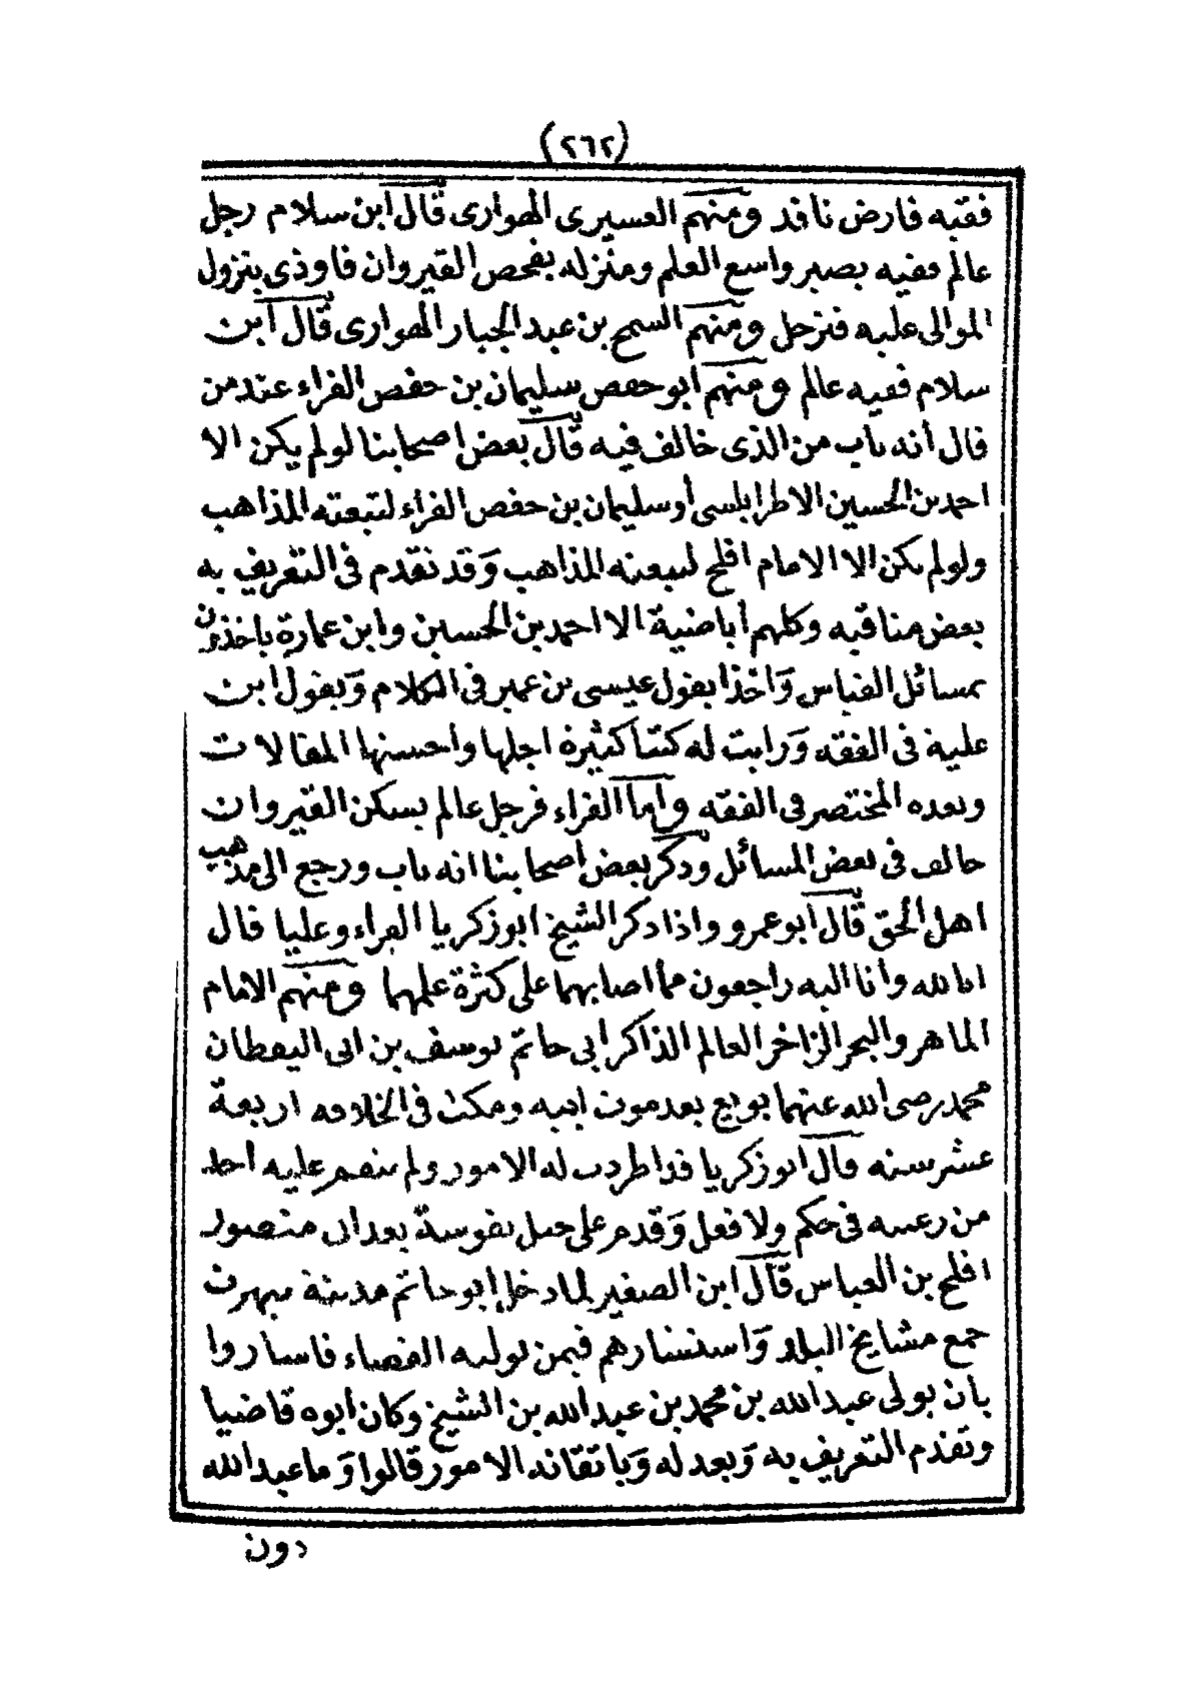 (٢٦٢)
فقيه فارض نافد ومنهم العسيرى الهوارى قال ابن سلام رجل
عالم فقيه بصير واسع العلم ومنزله بفحص القيروان فاوذى بنزول
الموالى عليه فنزحل ومنهم السمح بن عبد الجبار الهوارى قال ابن
سلام فقيه عالم ومنهم ابو حفص سليمان بن حفص الفراء عند من
قال انه تاب من الذى خالف فيه قال بعض اصحابنا لو لم يكن الا
احمد بن الحسين الاطرابلسى أو سليمان بن حفص الفراء لتبعته المذاهب
ولو لم يكن الا الامام افلح لتبعته المذاهب وقد تقدم فى التعريف به
بعض مناقبه وكلهم أباضية الا احمد بن الحسين وابن عمارة ياخذون
بمسائل القياس وَاخذا بقول عيسى بن عمير فى الكلام وَبقول ابن
علية فى الفقه وَرايت له كتبا كثيرة اجلها وأحسنها المقالات
وبعده المختصر فى الفقه وأما الفراء فرجل عالم يسكن القيروان
خالف فى بعض المسائل وذكر بعض أصحابنا انه تاب ورجع الى مذهب
اهل الحق قال ابو عمرو واذا ذكر الشيخ ابو زكريا الفراء وعليا قال
انا لله وأنا اليه راجعون مما اصابهما على كثرة علمهما ومنهم الامام
الماهر والبحر الزاخر العالم الذاكر ابى حاتم يوسف بن ابى اليقظان
محمد رضى الله عنهما بويع بعد موت ابيه ومكث فى الخلافه اربعة
عشر سنه قال ابو زكريا قد اطردت له الامور ولم ينقم عليه احد
من رعيته فى حكم ولا فعل وَقدم على جبل نفوسة بعد ابى منصور
افلح بن العباس قال ابن الصغير لما دخل ابو حاتم مدينة تيهرت
جمع مشايخ البلد وَاستشارهم فيمن يوليه القضاء فاساروا
بان يولى عبد الله بن محمد بن عبد الله بن الشيخ وكان ابوه قاضيا
وتقدم التعريف به وَبعدله وَباتقانه الامور قالوا وَما عبد الله
دون